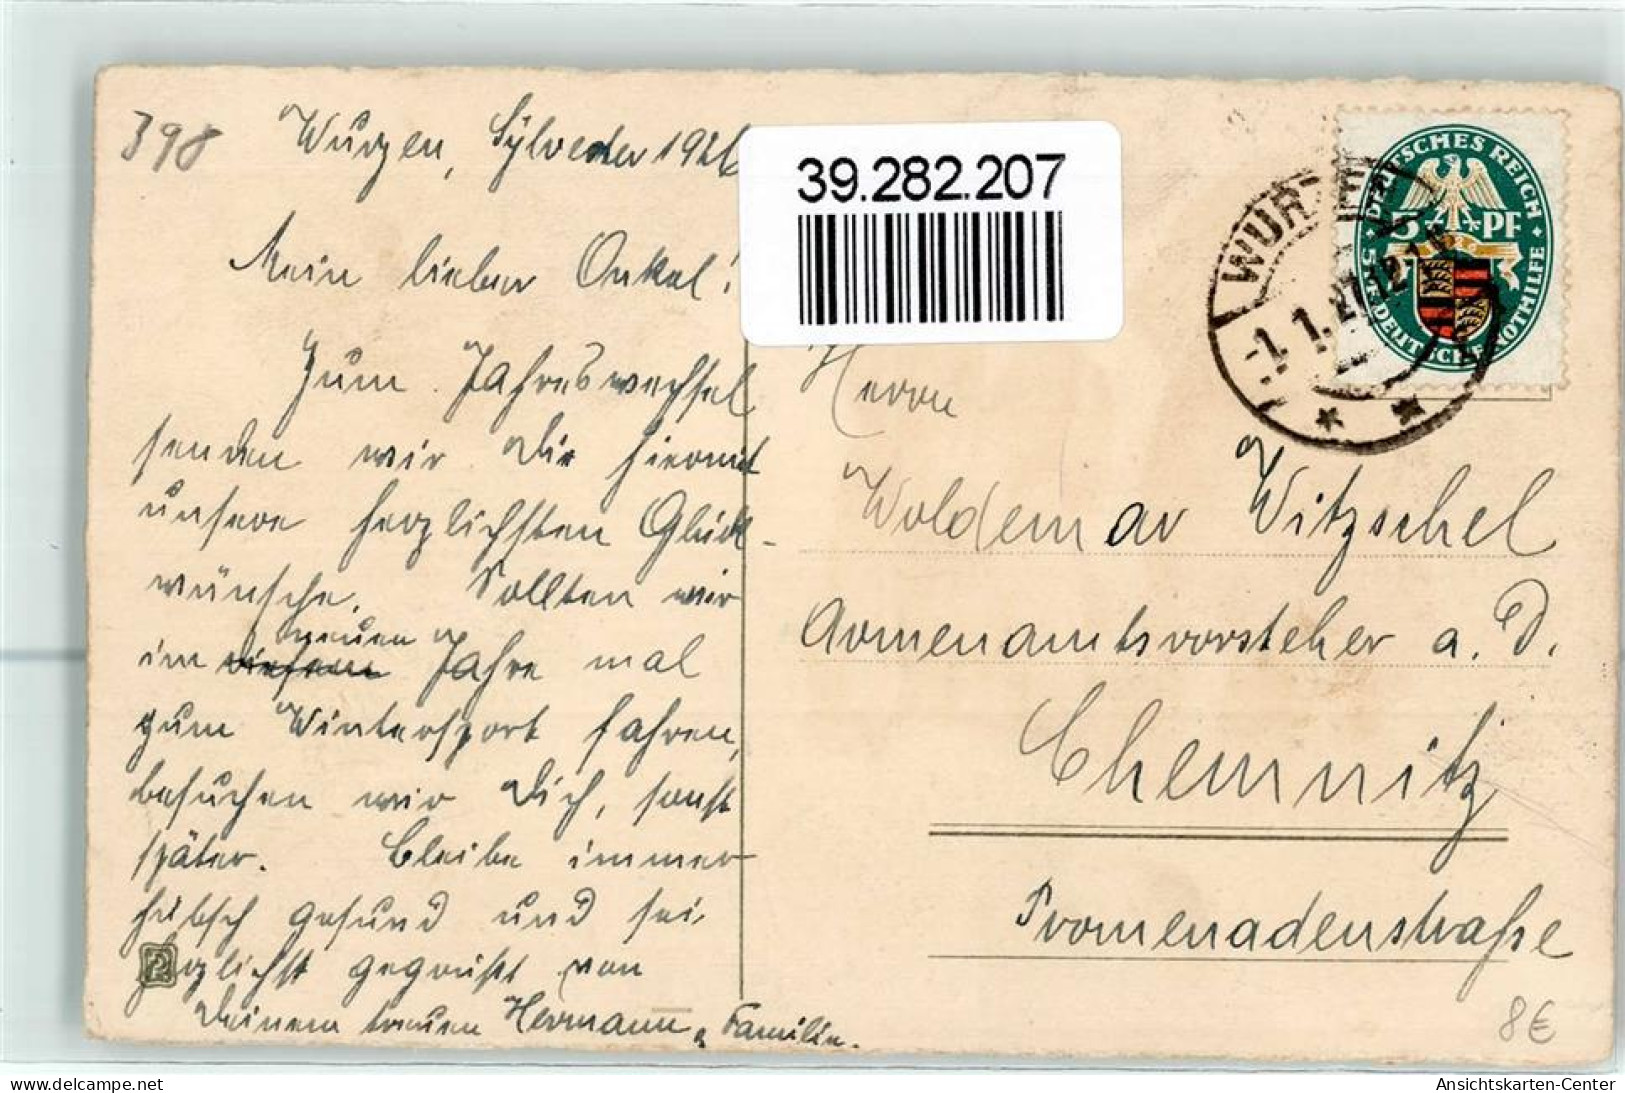 398
Wurzen, Sylvester 1926
Mein lieber Onkel!
Zum Jahreswechsel
senden wir Dir hiermit
unsere herzlichsten Glück-
wünsche. Sollten wir
neuen
im diesem Jahre mal
zum Wintersport fahren,
besuchen wir Dich, sonst
später. Bleibe immer
hübsch gesund und sei
herzlichst gegrüßt von
Deinem treuen Hermann u. Familie.
39.282.207
DEUTSCHES REICH
5 PF
1926
5 PF. DEUTSCHE NOTHILFE
WURZEN
-1.1.27.12-1
Herrn
Woldemar Witzschel
Armenamtsvorsteher a. D.
Chemnitz
Promenadenstraße
8€
www.delcampe.net
Ansichtskarten-Center